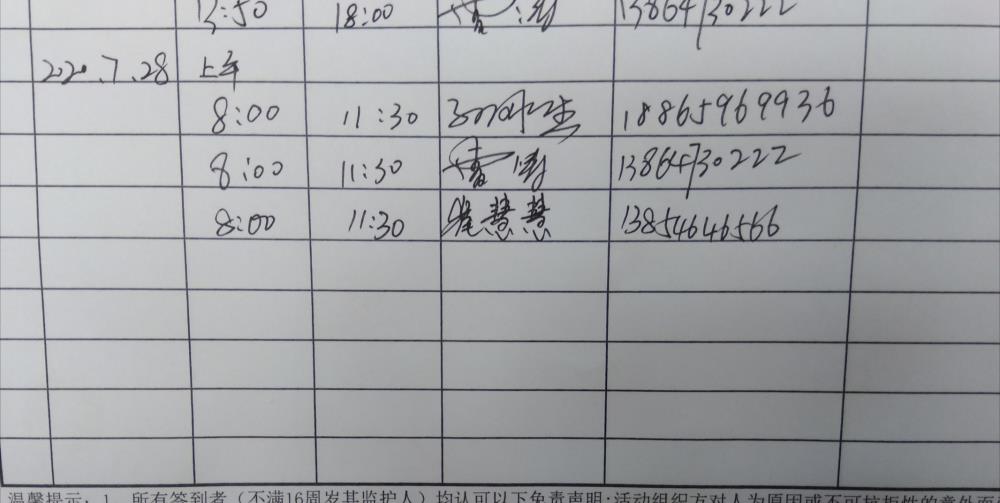 13:50 18:00 13864730222
2020.7.28 上午
8:00 11:30 18865969936
8:00 11:30 13864730222
8:00 11:30 崔慧慧 13854646566
温馨提示：1、所有签到者（不满16周岁其监护人）均认可以下免责声明：活动组织方对人为原因或不可抗拒性的意外而